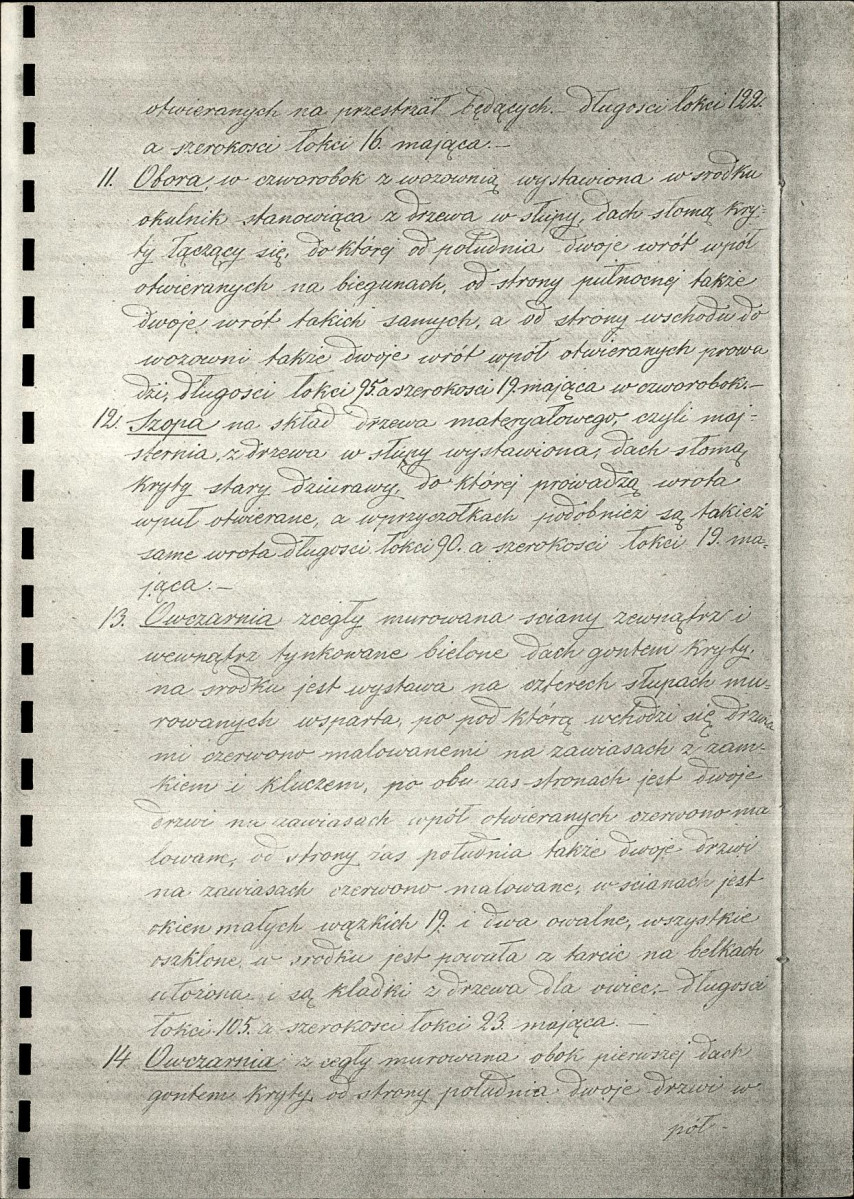 otwieranych na przestrzał będących. – długosci łokci 122.
a szerokosci łokci 16. mająca. –
11. Obora, w czworobok z wozownią wystawiona w srodku
okulnik stanowiąca z drzewa w słupy, dach słomą kry-
ty łączący się, do której od południa dwoje wrót wpół
otwieranych na biegunach, od strony pułnocnej także
dwoje wrót takich samych, a od strony wschodu do
wozowni także dwoje wrót wpół otwieranych prowa
dzi, długosci łokci 95. a szerokosci 19. mająca w czworobok. –
12. Szopa na skład drzewa materyałowego, czyli maj-
sternia, z drzewa w słupy wystawiona, dach słomą
kryty stary dziurawy, do której prowadzą wrota
wpuł otwierane, a wprzyczółkach podobnież są takież
same wrota długosci łokci 90. a szerokosci łokci 19. ma-
jąca. –
13. Owczarnia z cegły murowana sciany zewnątrz i
wewnątrz tynkowane bielone dach gontem kryty.
na srodku jest wystawa na czterech słupach mu-
rowanych wsparta, po pod którą wchodzi się drzwia
mi czerwono malowanemi na zawiasach z zam-
kiem i kluczem, po obu zas stronach jest dwoje
drzwi na zawiasach wpół otwieranych czerwono ma
lowane, od strony zas południa także dwoje drzwi
na zawiasach czerwono malowane, w scianach jest
okien małych wązkich 19. i dwa owalne, wszystkie
oszklone, w srodku jest powała z tarcic na belkach
ułożona i są kladki z drzewa dla owiec. – długosci
łokci 105. a szerokosci łokci 23. mająca. –
14. Owczarnia z cegły murowana obok pierwszej dach
gontem kryty, od strony południa dwoje drzwi w
pół –